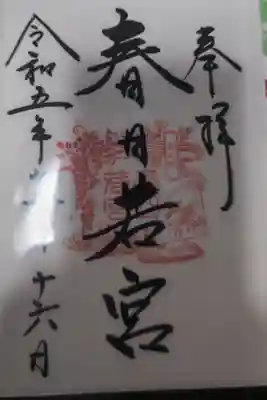 奉拝
春日若宮
令和五年 十六日